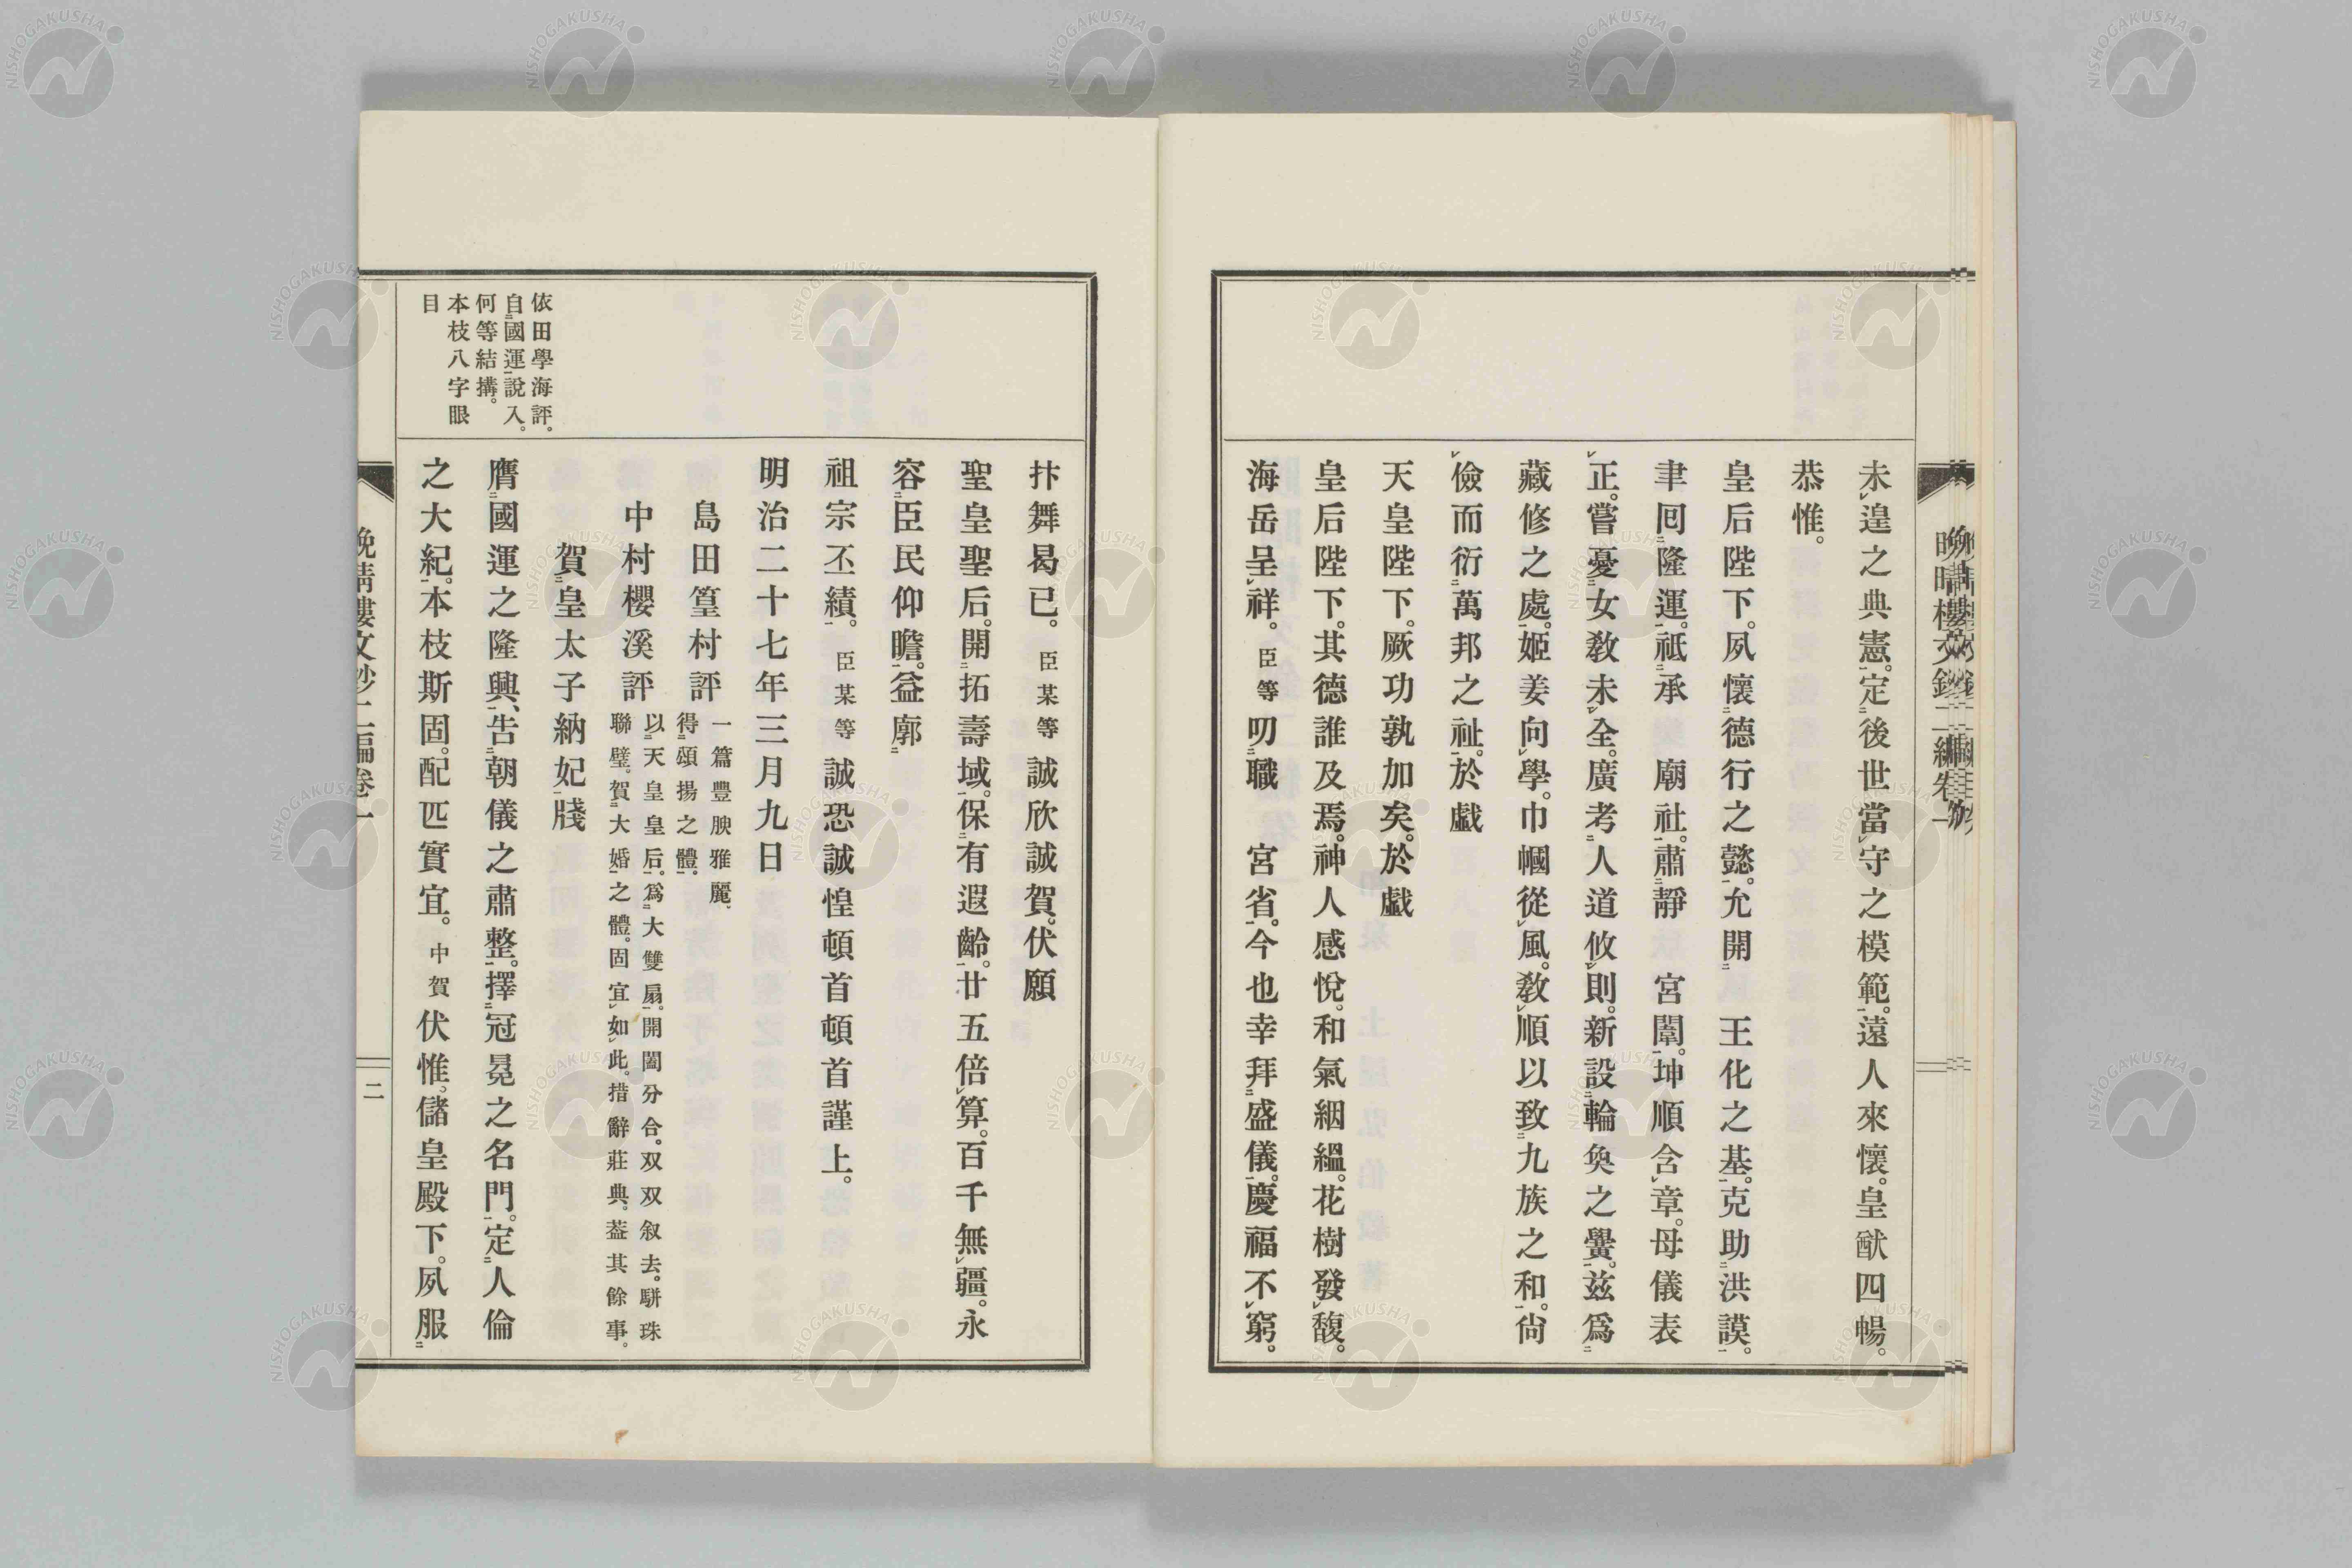 未遑之典憲。定後世當守之模範。遠人來懷。皇猷四暢。
恭惟。
皇后陛下。夙懷德行之懿。允開　王化之基。克助洪謨。
聿囘隆運。祗承　廟社。肅靜　宮闈。坤順含章。母儀表
正。嘗憂女敎未全。廣考人道攸則。新設輪奐之黌。茲爲
藏修之處。姬姜向學。巾幗從風。敎順以致九族之和。尙
儉而衍萬邦之祉。於戲
天皇陛下。厥功孰加矣。於戲
皇后陛下。其德誰及焉。神人感悅。和氣絪縕。花樹發馥。
海岳呈祥。臣等叨職　宮省。今也幸拜盛儀。慶福不窮。
抃舞曷已。臣某等誠欣誠賀。伏願
聖皇聖后。開拓壽域。保有遐齡。廿五倍算。百千無疆。永
容臣民仰瞻。益廓
祖宗丕績。臣某等誠恐誠惶頓首頓首謹上。
明治二十七年三月九日
島田篁村評　一篇豐腴雅麗、
得頌揚之體。
中村櫻溪評　以天皇皇后。爲大雙扇。開闔分合。双双叙去。駢珠
聯璧。賀大婚之體。固宜如此。措辭莊典。葢其餘事。
賀皇太子納妃牋
依田學海評。
自國運說入。
何等結搆。
本枝八字眼
目
膺國運之隆興、告朝儀之肅整。擇冠冕之名門。定人倫
之大紀。本枝斯固。配匹實宜。中賀伏惟。儲皇殿下。夙服
晚晴樓文鈔二編卷一
二